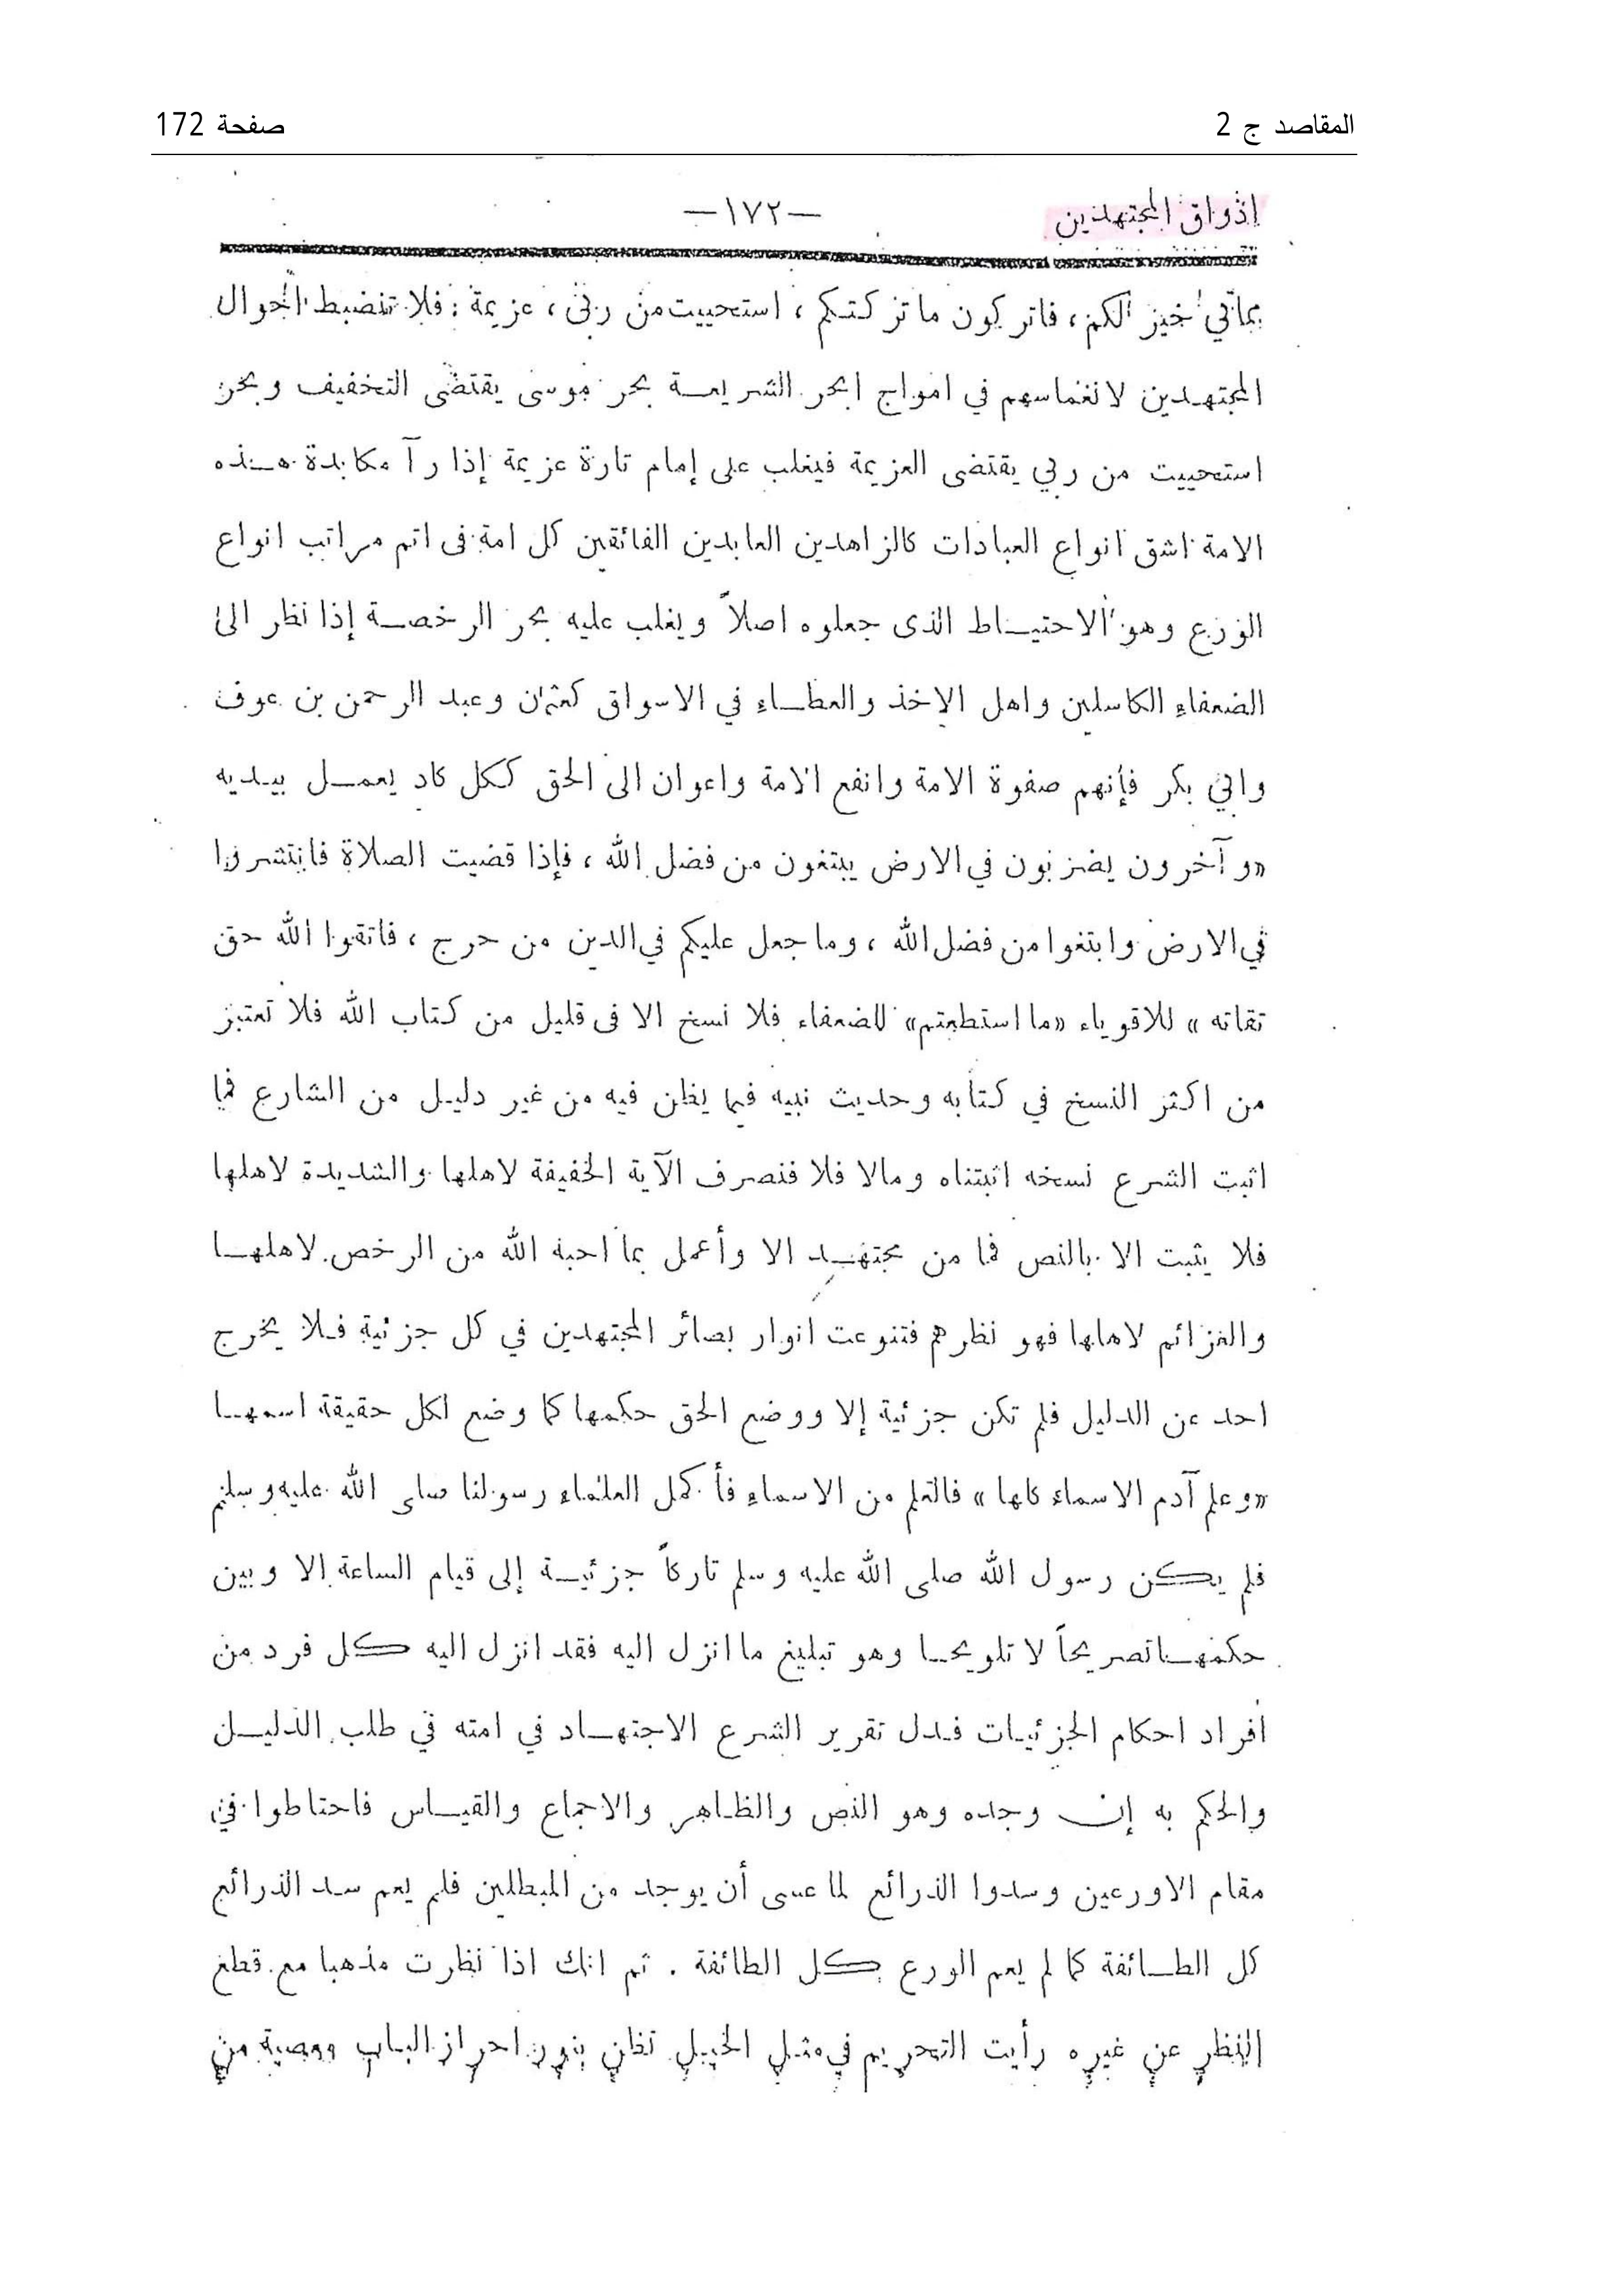 المقاصد ج 2
صفحة 172
اذواق المجتهدين
—١٧٢—
خير لكم، فاتركون ما تركتكم، استحييت من ربي، عزيمة: فلا تنضبط احوال
المجتهدين لانغماسهم في امواج ابحر الشريعة بحر موسى يقتضى التخفيف وبحر
استحييت من ربي يقتضى العزيمة فيغلب على إمام تارة عزيمة إذا رآ مكابدة هذه
الامة اشق انواع العبادات كالزاهدين العابدين الفائقين كل امة فى اتم مراتب انواع
الورع وهو الاحتياط الذى جعلوه اصلاً ويغلب عليه بحر الرخصة إذا نظر الى
الضعفاء الكاسلين واهل الاخذ والعطاء في الاسواق كعثمان وعبد الرحمن بن عوف
وابي بكر فإنهم صفوة الامة وانفع الامة واعوان الى الحق ككل كاد يعمل بيديه
«وآخرون يضربون في الارض يبتغون من فضل الله، فإذا قضيت الصلاة فانتشروا
في الارض وابتغوا من فضل الله، وما جعل عليكم في الدين من حرج، فاتقوا الله حق
تقاته» للاقوياء «ما استطعتم» للضعفاء فلا نسخ الا فى قليل من كتاب الله فلا تعتبر
من اكثر النسخ في كتابه وحديث نبيه فيما يظن فيه من غير دليل من الشارع فما
اثبت الشرع نسخه اثبتناه ومالا فلا فنصرف الآية الخفيفة لاهلها والشديدة لاهلها
فلا يثبت الا بالنص فما من مجتهد الا وأعمل بما احبه الله من الرخص لاهلها
والعزائم لاهلها فهو نظرهم فتنوعت انوار بصائر المجتهدين في كل جزئية فلا يخرج
احد عن الدليل فلم تكن جزئية إلا ووضع الحق حكمها كما وضع لكل حقيقة اسمها
«وعلم آدم الاسماء كلها» فالعلم من الاسماء فأكمل العلماء رسولنا صلى الله عليه وسلم
فلم يكن رسول الله صلى الله عليه وسلم تاركاً جزئية إلى قيام الساعة إلا وبين
حكمها تصريحاً لا تلويحا وهو تبليغ ما انزل اليه فقد انزل اليه كل فرد من
افراد احكام الجزئيات فدل تقرير الشرع الاجتهاد في امته في طلب الدليل
والحكم به إن وجده وهو النص والظاهر والاجماع والقياس فاحتاطوا في
مقام الاورعين وسدوا الذرائع لما عسى أن يوجد من المبطلين فلم يعم سد الذرائع
كل الطائفة كما لم يعم الورع بكل الطائفة . ثم انك اذا نظرت مذهبا مع قطع
النظر عن غيره رأيت التحريم في مثل الحيل تظن بنور احراز الباب ووصية من